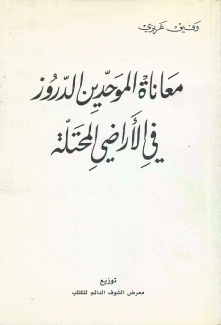 وفيق غريزي
معاناة الموحّدين الدّروز
في الأراضي المحتلّة
توزيع
معرض الشوف الدائم للكتاب